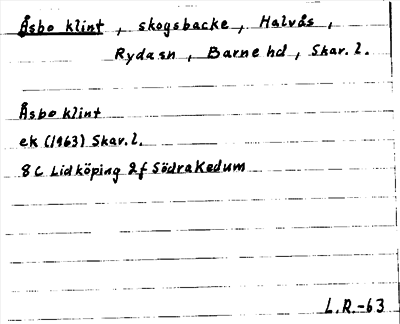 Åsbo klint, skogsbacke, Halvås,
Ryda sn, Barne hd, Skar. l.
Åsbo klint
ek (1963) Skar. l.
8C Lidköping 2f Södra Kedum
L.R.-63